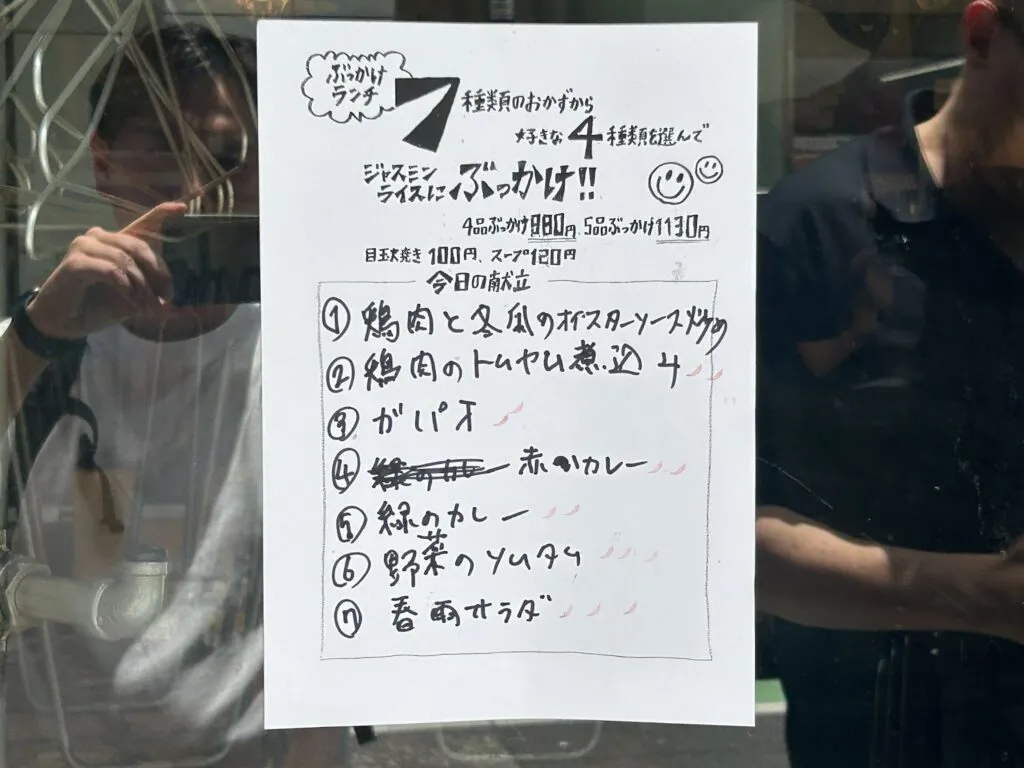 ぶっかけ
ランチ
7種類のおかずから
好きな4種類を選んで
ジャスミン
ライスにぶっかけ!!
4品ぶっかけ980円、5品ぶっかけ1130円
目玉焼き100円、スープ120円
今日の献立
① 鶏肉と冬瓜のオイスターソース炒め
② 鶏肉のトムヤム煮込み
③ ガパオ
④ 緑のカレー 赤のカレー
⑤ 緑のカレー
⑥ 野菜のソムタム
⑦ 春雨サラダ